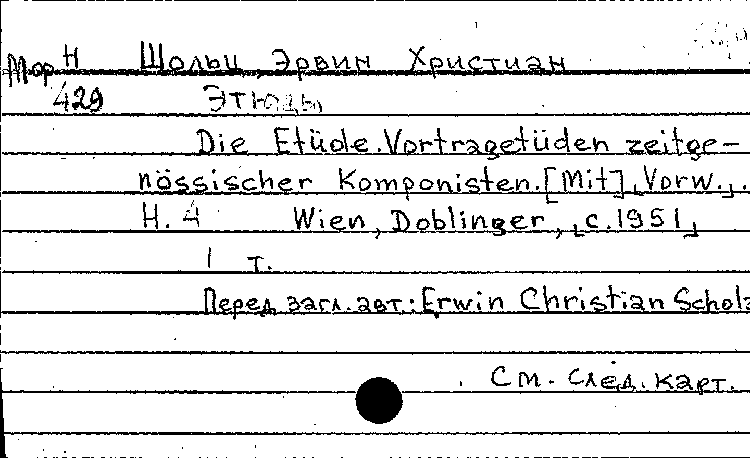 Мор Н Шольц, Эрвин Христиан
429 Этюды
Die Etüde. Vortragetüden zeitge-
nössischer Komponisten. [Mit] Vorw.
H. 4 Wien, Doblinger, [c. 1951]
1 т.
Перед загл. авт.: Erwin Christian Scholz
См. след. карт.